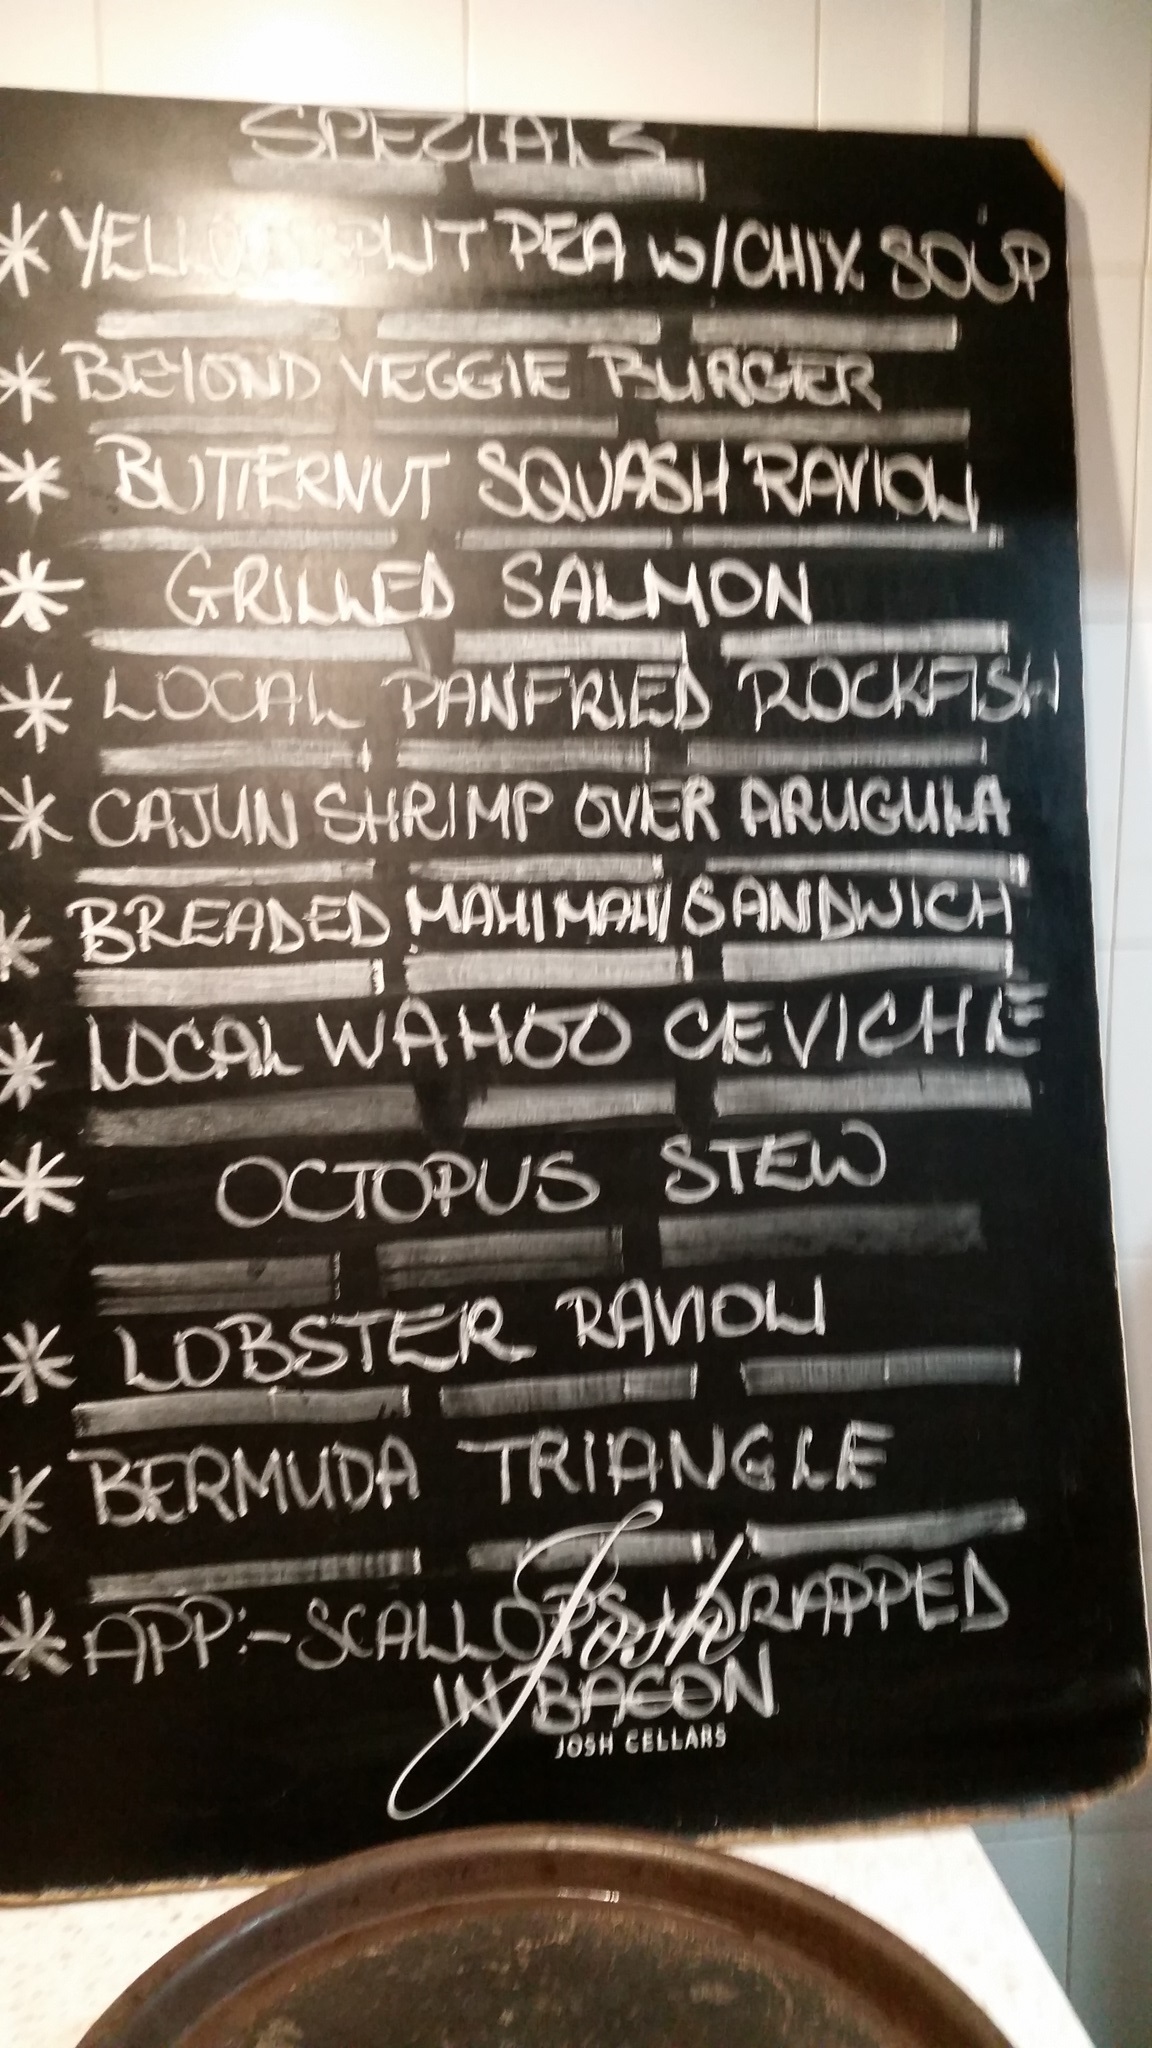 SPEZIALS
* YELLOW SPLIT PEA W/CHIX SOUP
* BEYOND VEGGIE BURGER
* BUTTERNUT SQUASH RAVIOLI
* GRILLED SALMON
* LOCAL PANFRIED ROCKFISH
* CAJUN SHRIMP OVER ARUGULA
* BREADED MAHI MAHI SANDWICH
* LOCAL WAHOO CEVICHE
* OCTOPUS STEW
* LOBSTER RAVIOLI
* BERMUDA TRIANGLE
* APP:- SCALLOPS WRAPPED
IN BACON
Josh
JOSH CELLARS